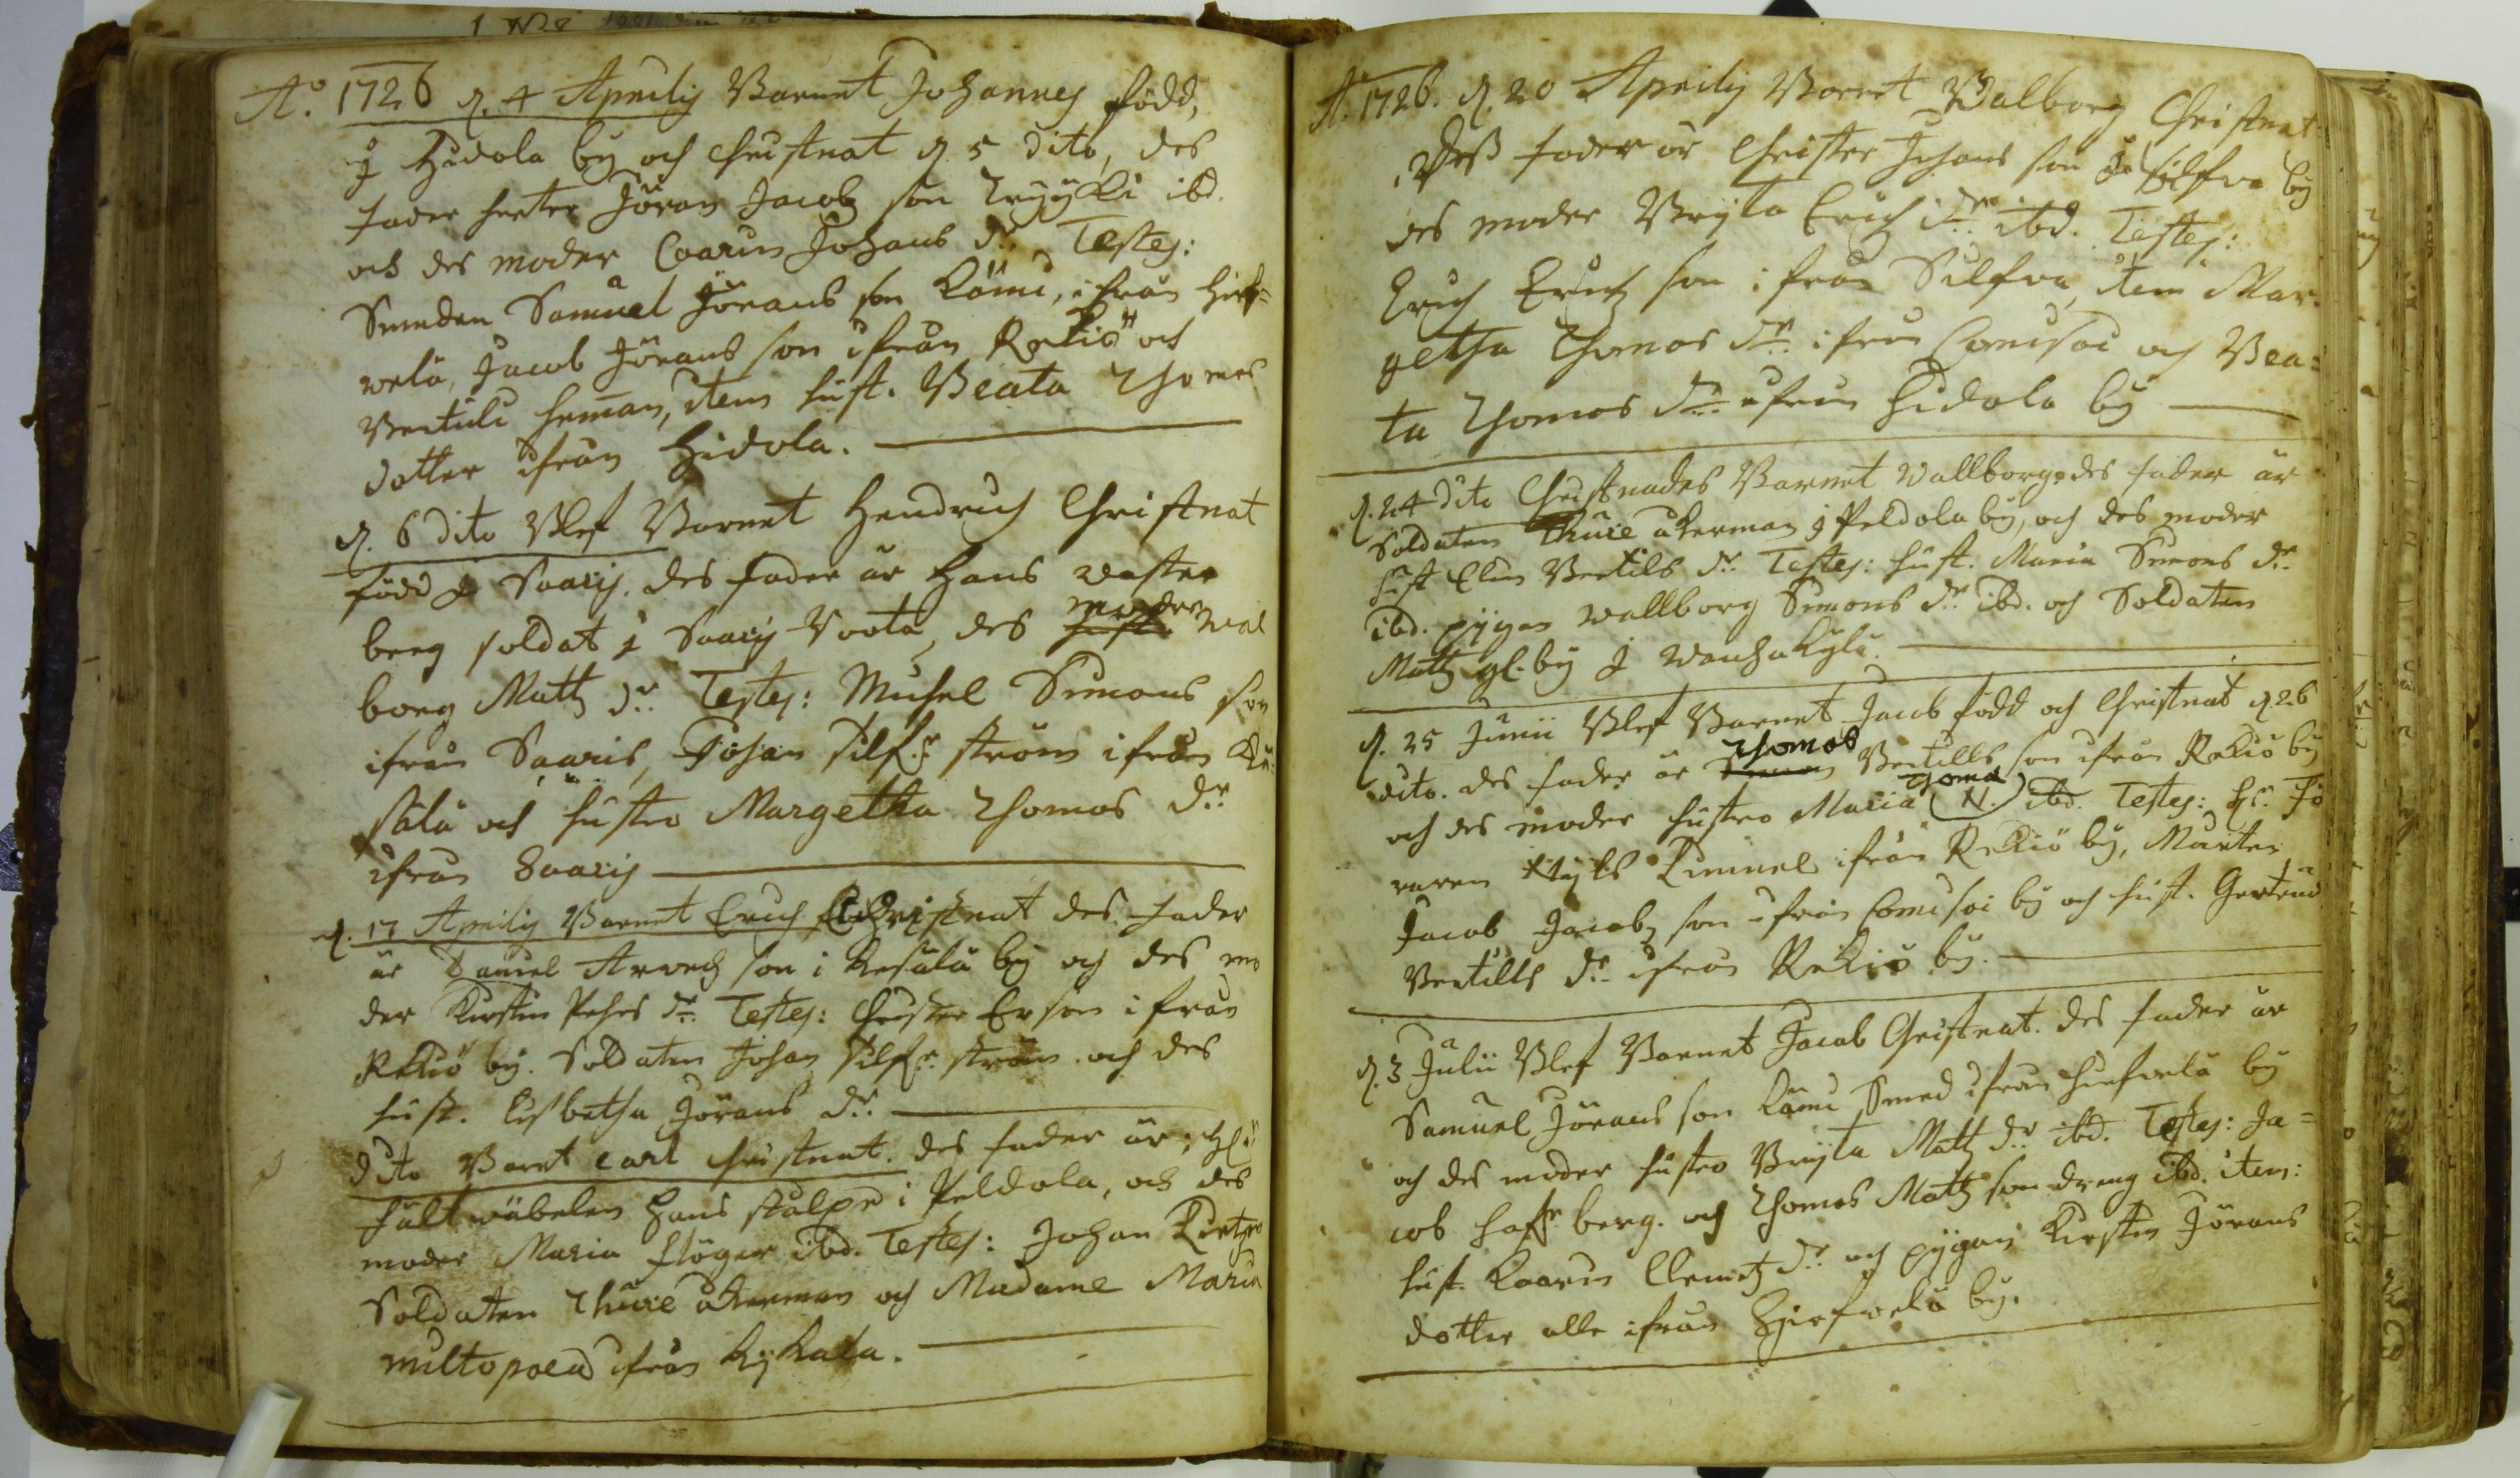 A:o 1726 d. 4 Aprilis Barnet Johannes född,
J Hidola by och christnat d. 5 dito, des
fader heeter Jöran Jacobs son ibd.
och des moder Caarin Johans dr. Testes:
Smeden Samuel Jörans son Kämi, ifrån Hirf=
welä, Jacob Jörans son ifrån Rekiö och
Bertill heman, item hust. Beata Thomas
dotter ifrån Hidola.
d. 6 dito Blef Barnet Hendrich Christnat
född J Saaris. des fader är Hans waster
berg soldat i Saaris Roota, des moder wal
borg Matts dr. Testes: Michel Simons son
ifrån Saaris, Johan silfr ström ifrån Ke=
sälä och hustro Margetha Thomos dr.
ifrån Saaris
d. 17 Aprilis Barnet Erich Christnat des fader
är Daniel Arvedz son i Kesälä by och des mo
der Kirstin Pehrs dr. Testes: Christer Ersson ifrån
Rekiö by. Soldaten Johan silfr. ström och des
hust. Lisbetha Jörans dr.
dito Barnet carl christnat. des fader är; H:r
fältwäbelen Hans stalpe i Peldola, och des
moder Maria flöger ibd. Testes: Johan
Soldaten Thure åkerman och Madame Maria
miltopoea ifrån Kykala.
A:o 1726. d. 20 Aprilis Barnet Walborg Christnat
Dess fader är Christer Johans son J Silfva by
des moder Bryta Erich dr. ibd. Testes:
Erich Erichs son ifrån Silfva, item Mar=
getha Thomas dr. ifrån Comisoi och Bea=
ta Thomos dr. ifrån Hidola by
d. 24 dito Christnades Barnet Wallborg, des fader är
Soldaten Thure åkerman i Peldola by, och des moder
hust Elin Bertils dr. Testes: hust. Maria Simons dr.
ibd. pygan wallborg Simons dr. ibd. och Soldaten
Matts gl. by J wanhakylä.
d. 25 Junii Blef Barnet Jacob född och Christnat d. 26
dito. des fader är Thomos Bertills son ifrån Rekiö by
och des moder hustro Maria Thoma (N.) ibd. Testes: H:r Fö
raren Nyls Kimmel ifrån Rekiö by, Mårten
Jacob Jacobs son ifrån Comisoi by och hust. Gertrud
Bertills dr. ifrån Rekiö by.
d. 3 Julii Blef Barnet Jacob Christnat. des fader är
Samuel Jörans son Kämi Smed ifrån Hirfwelä by
och des moder hustro Bryta Matts dr. ibd. Testes: Ja=
cob berg. och Thomos Matts son dreng ibd. item:
hust. Kaarin Clemetz dr. och pygan Kirstin Jörans
dotter alle ifrån Hirfwelä by.